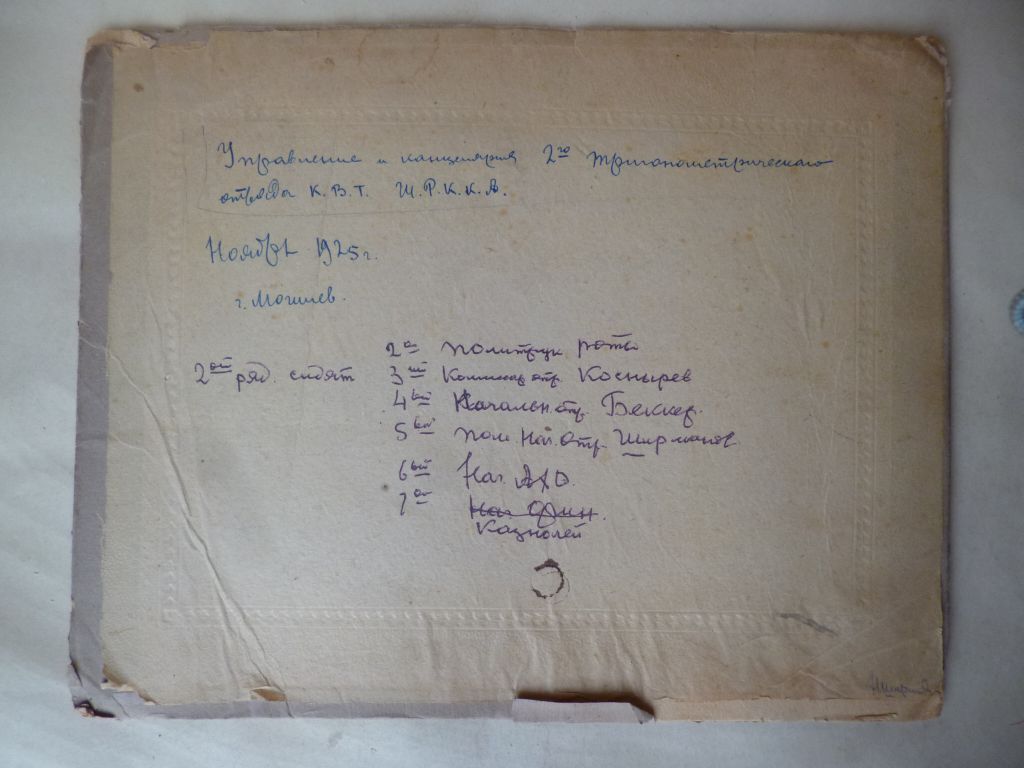 Управление и канцелярия 2го тригонометрического
отряда К.В.Т. Ш.Р.К.К.А.
Ноябрь 1925 г.
г. Могилев.
2ой ряд. сидят
2ой политрук роты
3ий Комиссар отр. Коснырев
4ый Начальн. отр. Беккер.
5ый пом. Нач. Отр. Ширманов.
6ой Нач. АХО.
7ой Нач Фин.
Казначей